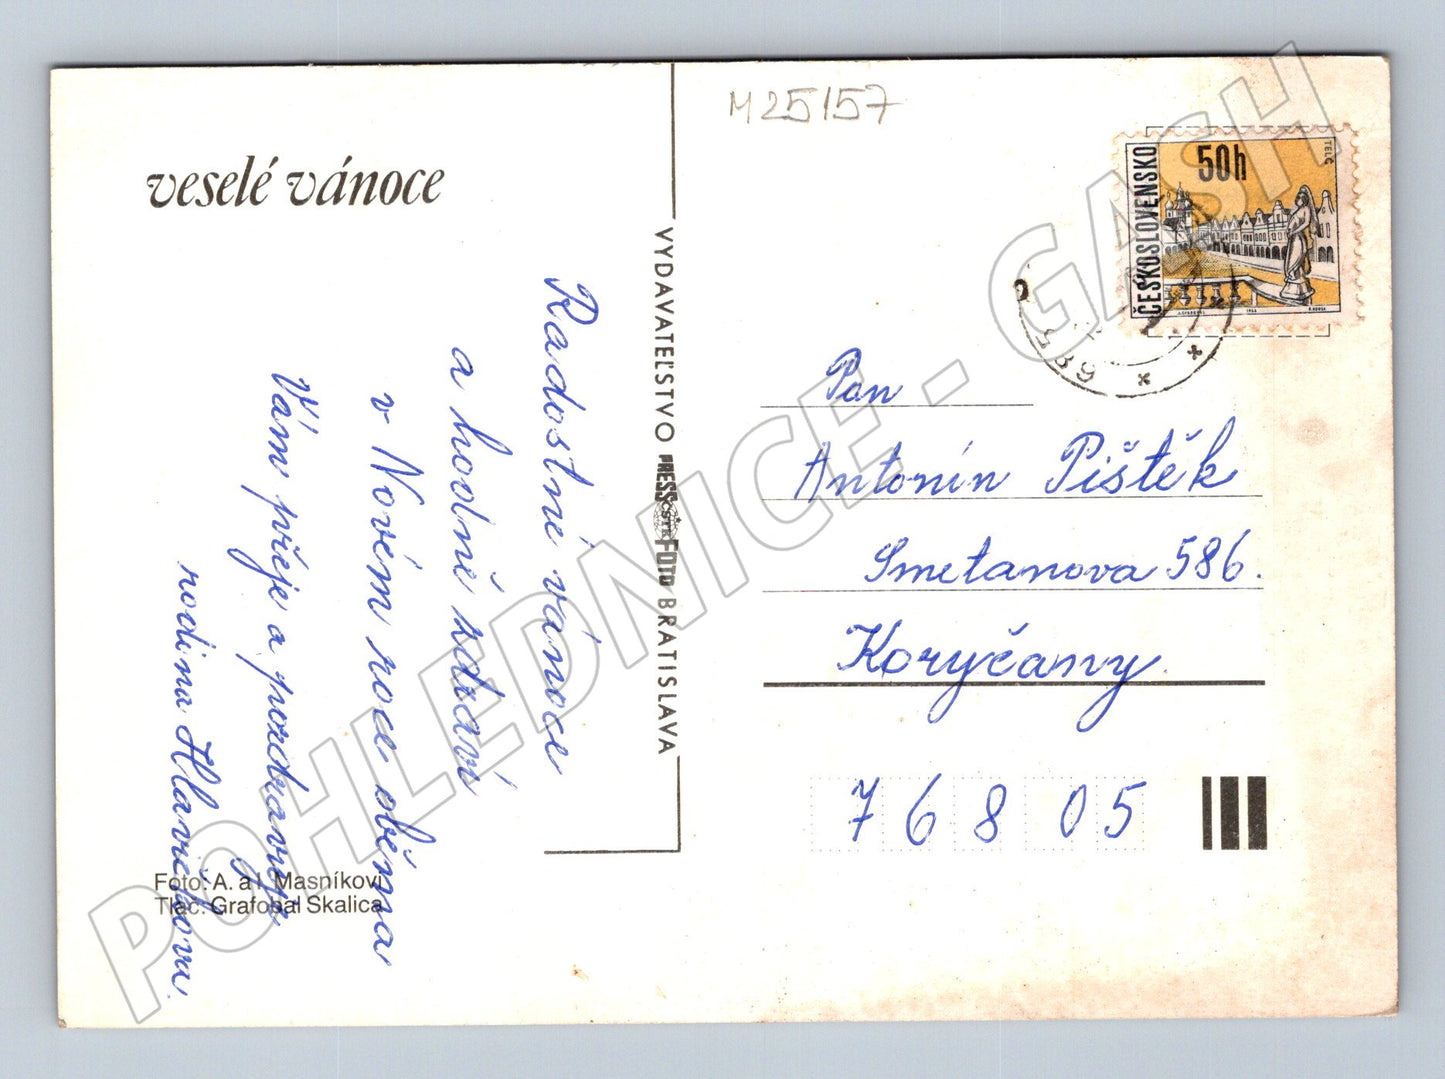 M25157
veselé vánoce
Radostné vánoce
a hodně zdraví
v Novém roce oběma
Vám přeje a pozdravuje
rodina Hlavičkova.
Foto: A. a I. Masníkovi
Tlač: Grafobal Skalica
VYDAVATEĽSTVO PRESSFOTO BRATISLAVA
ČSTK
ČESKOSLOVENSKO
50h
TELČ
Pan
Antonín Pištěk
Smetanova 586.
Koryčany.
768 05
POHLEDNICE - GASH